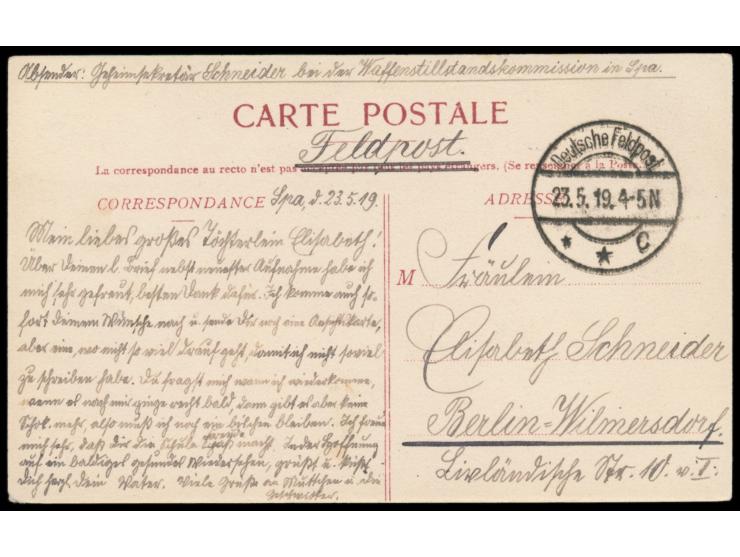 Absender: Geheimsekretär Schneider bei der Waffenstillstandskommission in Spa.
CARTE POSTALE
Feldpost.
La correspondance au recto n'est pas acceptée par tous les pays étrangers. (Se renseigner à la Poste.)
Deutsche Feldpost
23.5.19.4-5N
* * c
CORRESPONDANCE
ADRESSE
Spa, d. 23.5.19.
Mein liebes großes Töchterlein Elisabeth!
Über Deinen l. Brief nebst neuester Aufnahme habe ich
mich sehr gefreut, besten Dank dafür. Ich komme auch so-
fort Deinem Wunsche nach u. sende Dir noch eine Ansichtskarte,
aber eine, wo nicht so viel drauf geht, damit ich nicht soviel
zu schreiben habe. Du fragst mich wann ich wiederkomme,
wenn es nach mir ginge recht bald, dann gibt es aber keine
Schok. mehr, also muß ich noch ein bischen bleiben. Ich freue
mich sehr, daß Dir die Schule Freude macht. In der Hoffnung
auf ein baldiges gesundes Wiedersehen, grüßt u. küßt
Dich herzl. Dein Vater. Viele Grüße an Muttchen u. die
Geschwister.
M Fräulein
Elisabeth Schneider
Berlin=Wilmersdorf.
Livländische Str. 10. v. I.